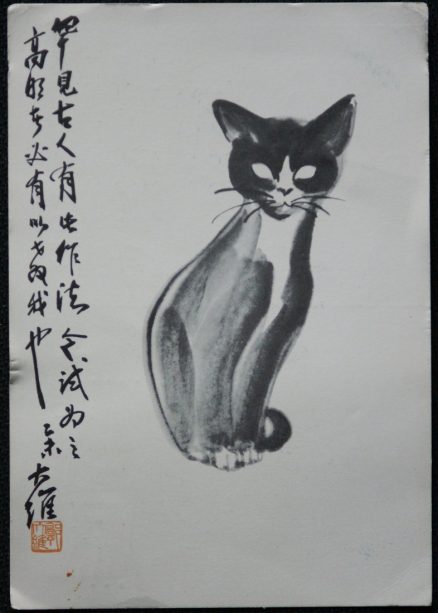 罕見古人有此作法今試為之
高明者必有以教我也
乙未大維